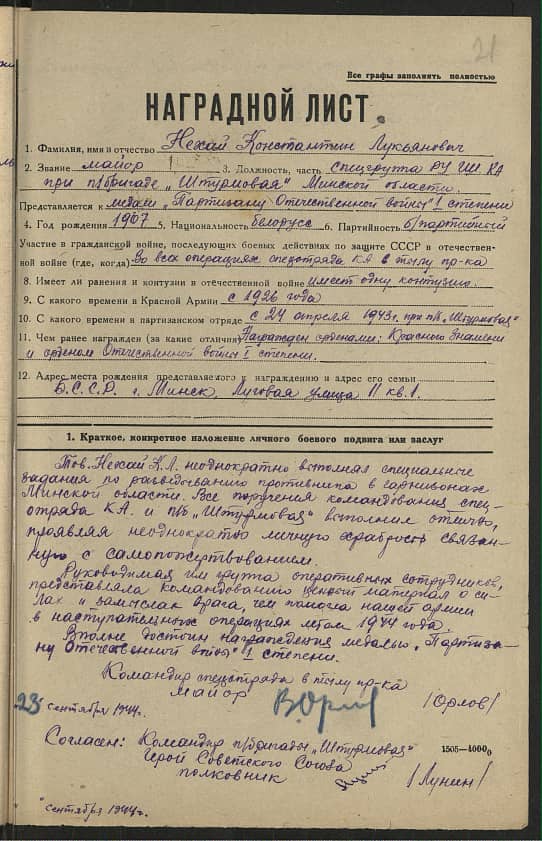 21
Все графы заполнять полностью
НАГРАДНОЙ ЛИСТ.
1. Фамилия, имя и отчество Нехай Константин Лукьянович
2. Звание майор 3. Должность, часть спецгруппа РУ ГШ КА
при п/бригаде „Штурмовая" Минской области.
Представляется к медали „Партизану Отечественной войны" I степени
4. Год рождения 1907 5. Национальность белорусс 6. Партийность б/партийный
Участие в гражданской войне, последующих боевых действиях по защите СССР в отечествен-
ной войне (где, когда) Во всех операциях спецотряда КА в тылу пр-ка
8. Имеет ли ранения и контузии в отечественной войне имеет одну контузию.
9. С какого времени в Красной Армии с 1926 года
10. С какого времени в партизанском отряде с 24 апреля 1943г. при п/б „Штурмовая"
11. Чем ранее награжден (за какие отличия) Награжден орденами: Красного Знамени
и орденом Отечественной войны I степени.
12. Адрес места рождения представляемого к награждению и адрес его семьи
Б.С.С.Р. г. Минск, Луговая улица 11 кв.1.
1. Краткое, конкретное изложение личного боевого подвига или заслуг
Тов. Нехай К.Л. неоднократно выполнял специальные
задания по разведыванию противника в гарнизонах
Минской области. Все поручения командования спец-
отряда КА. и п/б „Штурмовая" выполнил отлично,
проявляя неоднократно личную храбрость связан-
ную с самопожертвованием.
Руководимая им группа оперативных сотрудников,
представляла командованию ценный материал о си-
лах и замыслах врага, чем помогла нашей армии
в наступательных операциях летом 1944 года.
Вполне достоин награждения медалью „Партиза-
ну Отечественной войны" I степени.
Командир спецотряда в тылу пр-ка
майор В.Орлов /Орлов/
23 сентября 1944г.
Согласен: Командир п/бригады „Штурмовая"
1505-4000
Герой Советского Союза
полковник /Лунин/
" сентября 1944г.